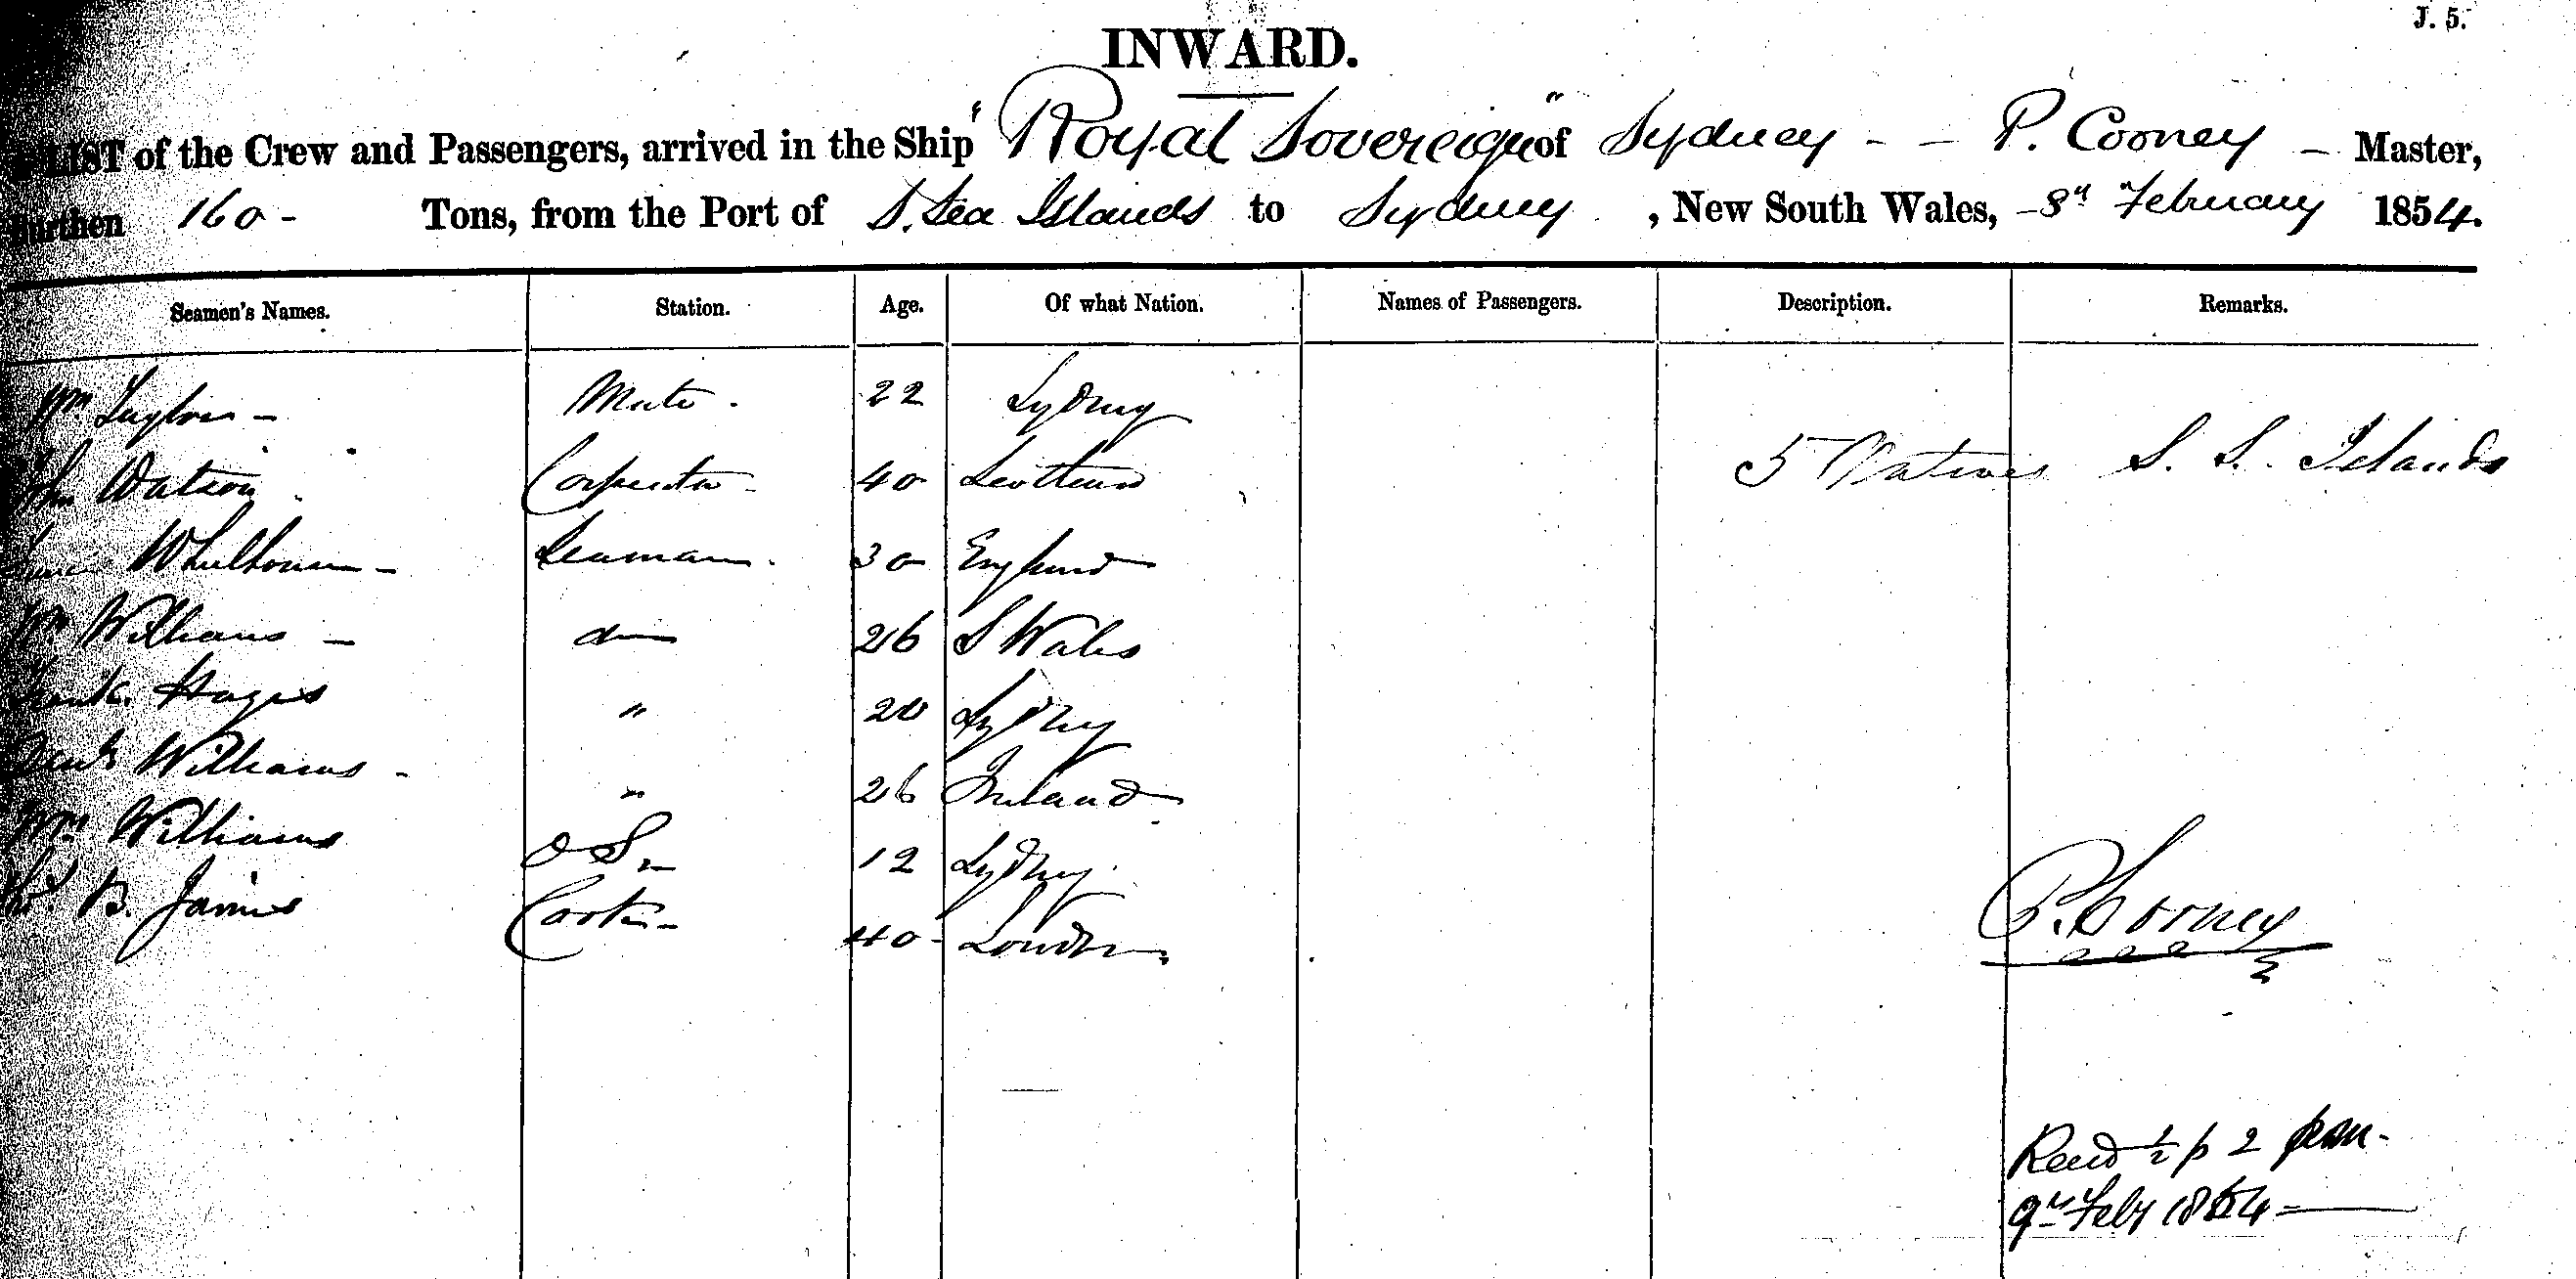 J. 5.
INWARD.
LIST of the Crew and Passengers, arrived in the Ship "Royal Sovereign" of Sydney - - P. Cooney - Master,
Burthen 160 - Tons, from the Port of S. Sea Islands to Sydney, New South Wales, - 8th February 1854.
Seamen's Names. Station. Age. Of what Nation. Names of Passengers. Description. Remarks.
Wm Taylor - Mate. 22 Sydney
John Watson Carpenter 40 Scotland 5 Natives S. S. Islands
Wheelhouse - Seaman. 30 England
Wm Williams - do 26 S Wales
Frank Hayes " 20 Sydney
Williams - " 26 Ireland
Wm Williams O S 12 Sydney
B. James Cook - 40 - London
P. Cooney
Recd ½ p 2 pm.
9th Feby 1854